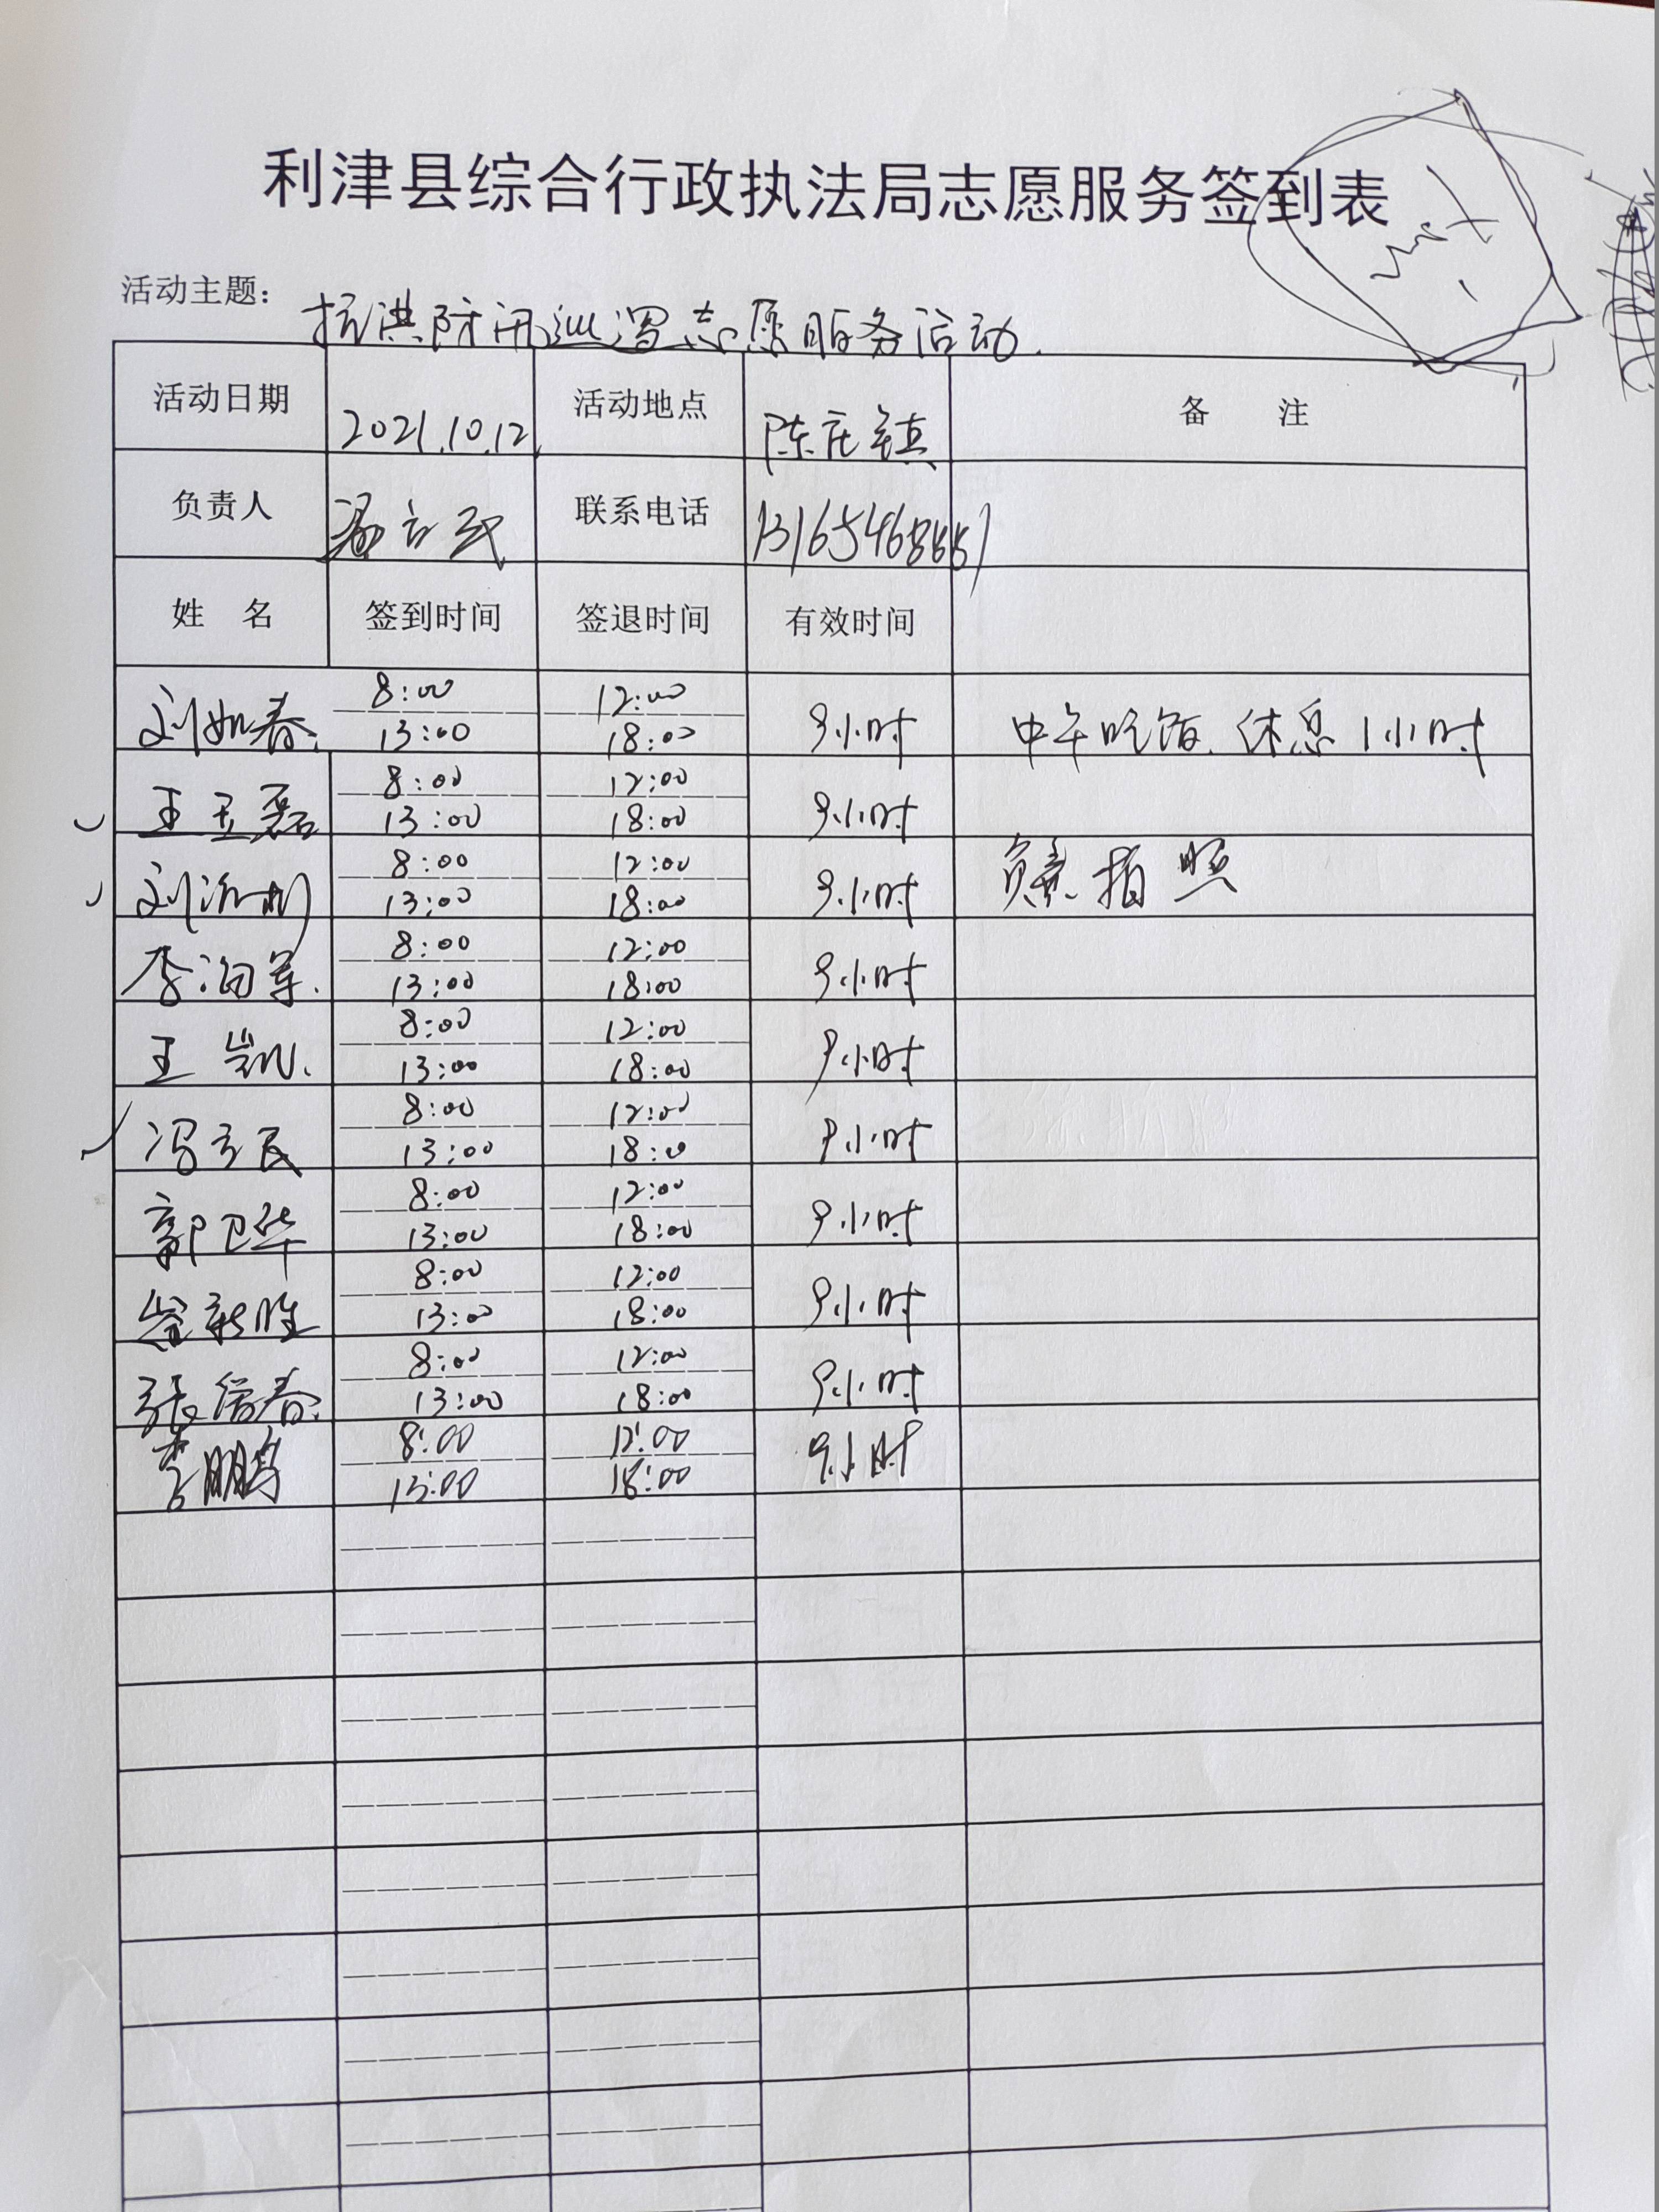 利津县综合行政执法局志愿服务签到表
活动主题：抗洪防汛巡逻志愿服务活动.
活动日期 2021.10.12 活动地点 陈庄镇 备 注
负责人 冯立民 联系电话
姓 名 签到时间 签退时间 有效时间
刘如春. 8:00 12:00 9小时 中午吃饭.休息1小时
13:00 18:00
王玉磊 8:00 12:00 9小时
13:00 18:00
刘 8:00 12:00 9小时 负责拍照
13:00 18:00
李 军. 8:00 12:00 9小时
13:00 18:00
王凯. 8:00 12:00 9小时
13:00 18:00
冯立民 8:00 12:00 9小时
13:00 18:00
郭卫华 8:00 12:00 9小时
13:00 18:00
崔新胜 8:00 12:00 9小时
13:00 18:00
张 春. 8:00 12:00 9小时
13:00 18:00
李鹏 8:00 12:00 9小时
13:00 18:00